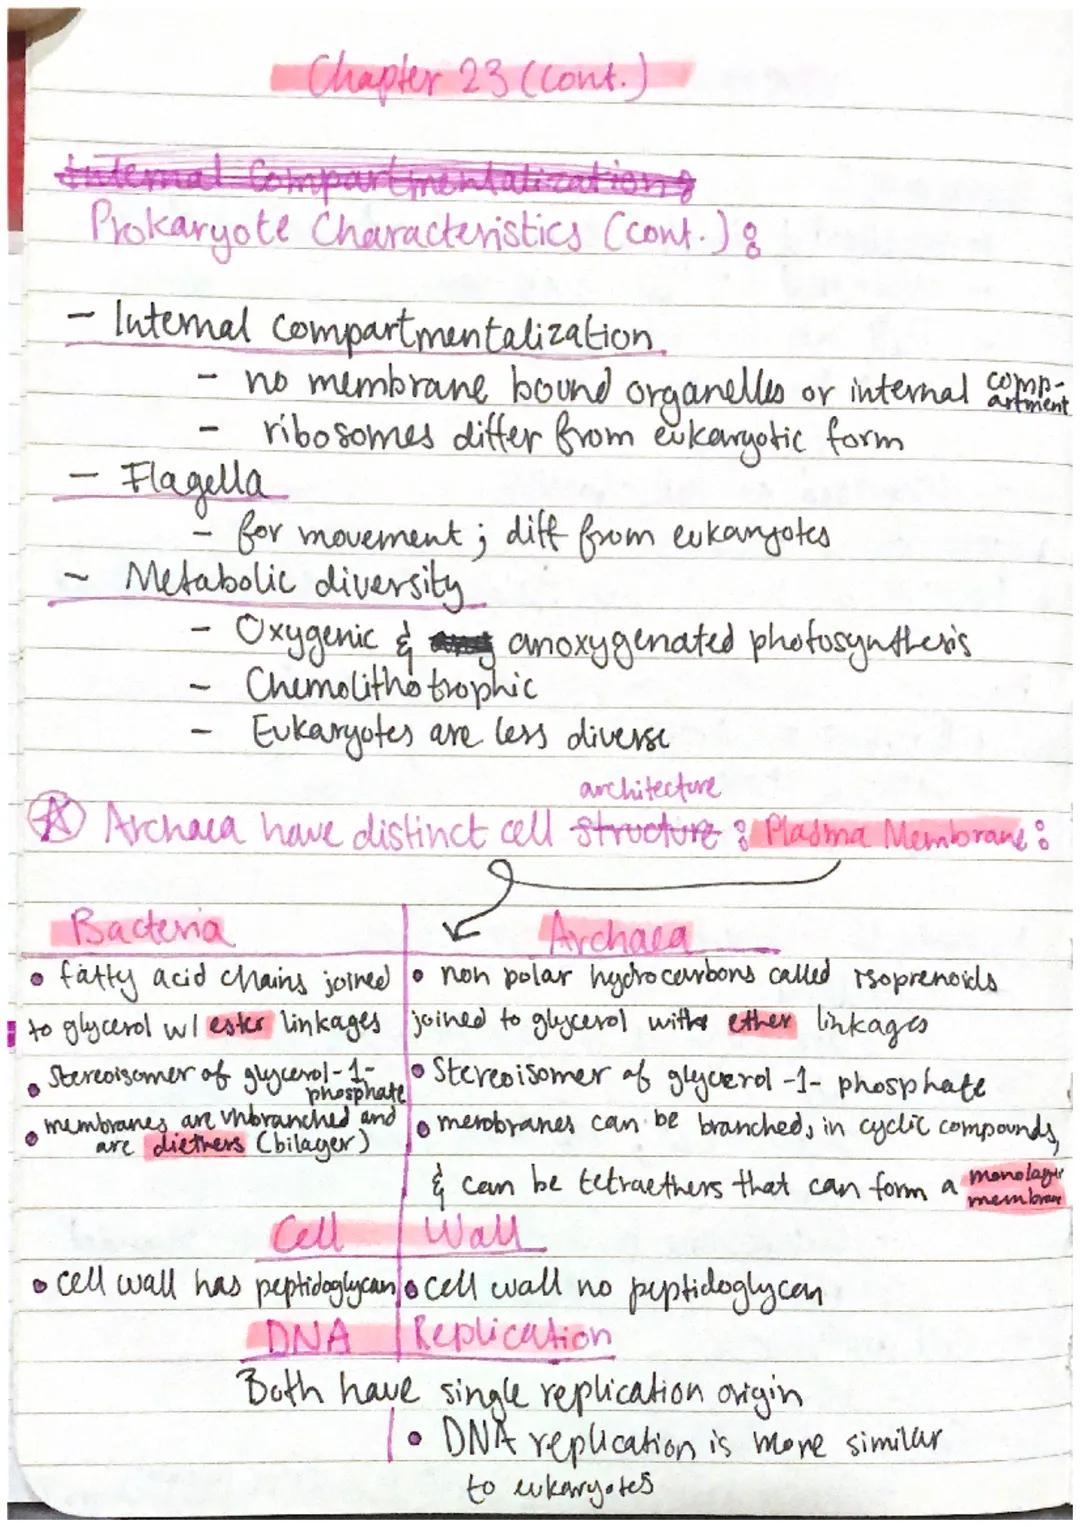 Chapter 23 (cont.)
Internal Compartmentalization:
Prokaryote Characteristics (cont.):
- Internal compartmentalization
- no membrane bound organelles or internal comp-artment
- ribosomes differ from eukaryotic form
- Flagella
- for movement; diff from eukaryotes
- Metabolic diversity
- Oxygenic & anoxygenated photosynthesis
- Chemolithotrophic
- Eukaryotes are less diverse
architecture
A Archaea have distinct cell structure: Plasma Membrane:
Bacteria
• fatty acid chains joined
to glycerol w/ ester linkages
• Stereoisomer of glycerol-1-
phosphate
• membranes are unbranched and
are diethers (bilayer)
Archaea
• non polar hydrocarbons called isoprenoids
joined to glycerol with ether linkages
• Stereoisomer of glycerol-1-phosphate
• membranes can be branched, in cyclic compounds,
& can be tetraethers that can form a monolayer membrane
Cell Wall
• cell wall has peptidoglycan
• cell wall no peptidoglycan
DNA Replication
Both have single replication origin
• DNA replication is more similar
to eukaryotes